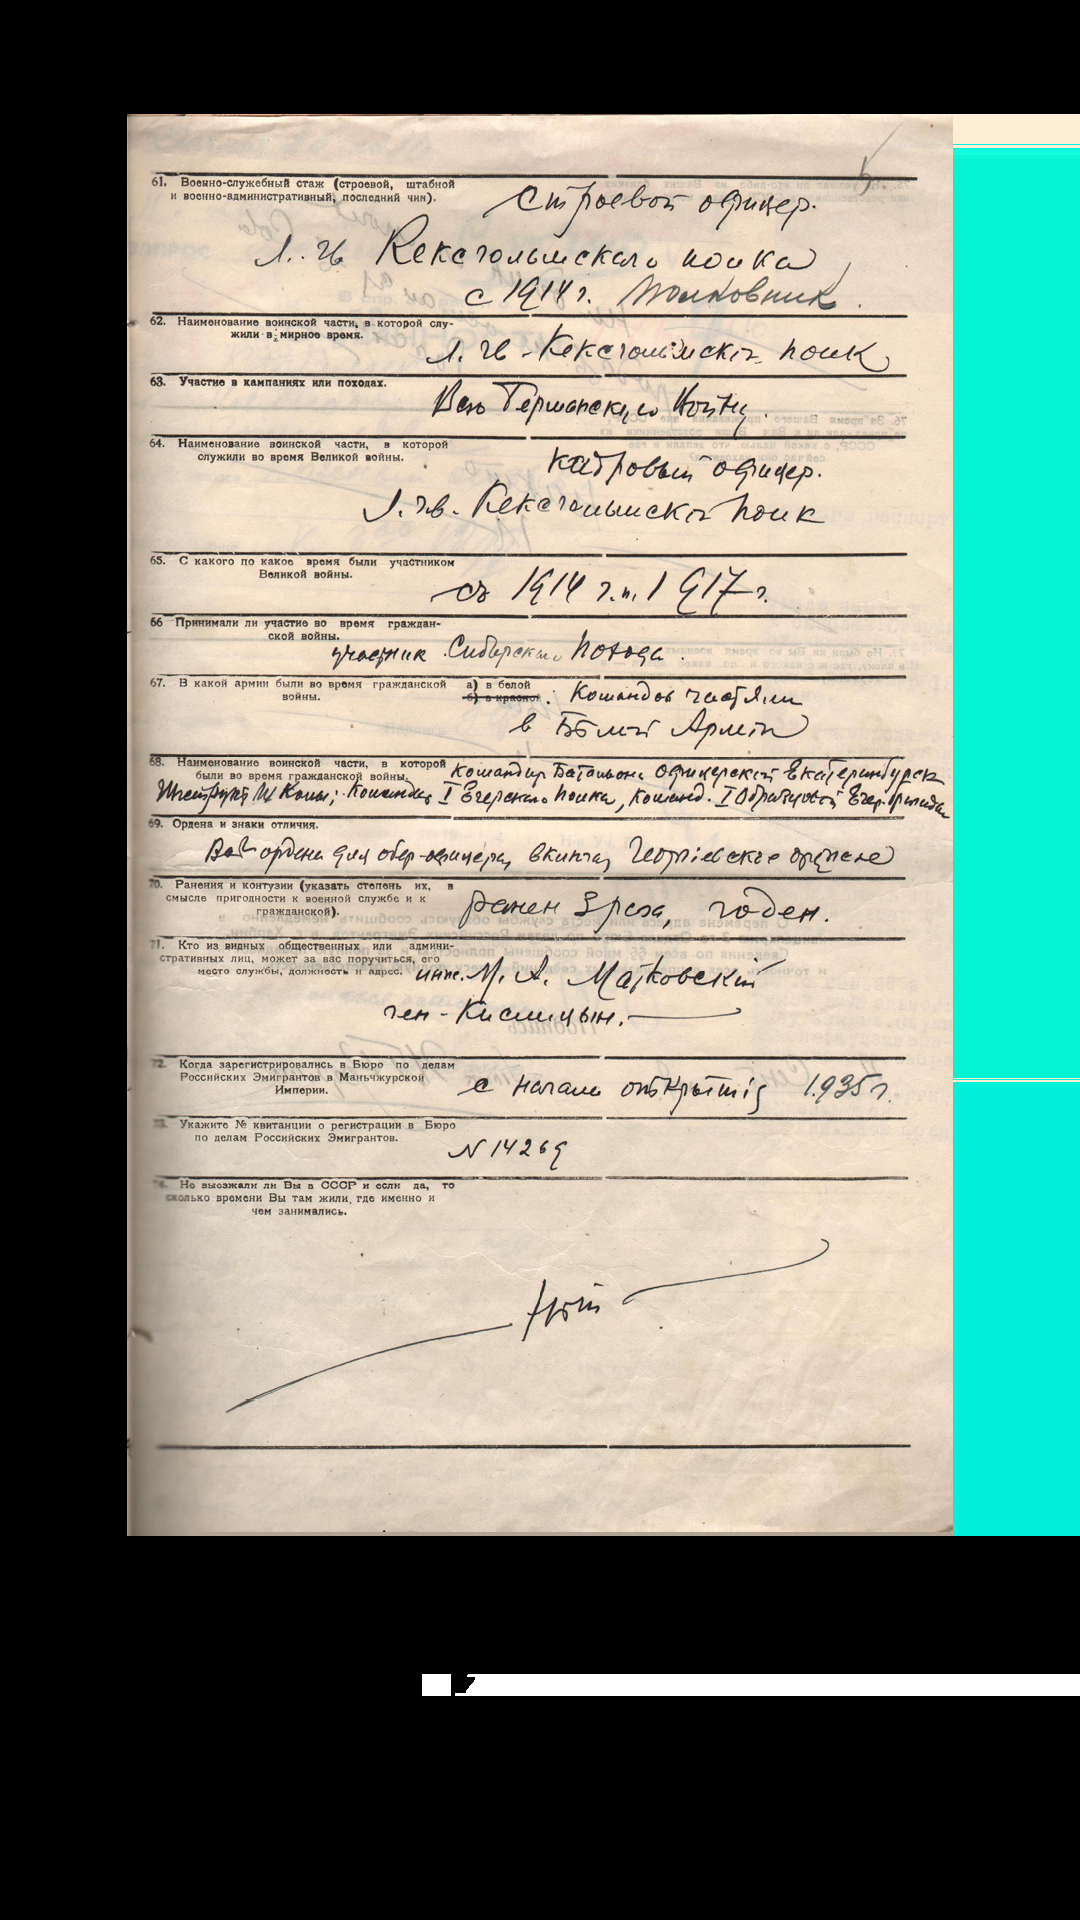 5
61. Военно-служебный стаж (строевой, штабной
и военно-административный, последний чин).
Строевой офицер.
Л. Гв Кексгольмскаго полка
с 1914 г. Полковник.
62. Наименование воинской части, в которой слу-
жили в мирное время.
Л. Гв - Кексгольмскій полк
63. Участие в кампаниях или походах.
Всю Германскую Войну.
64. Наименование воинской части, в которой
служили во время Великой войны.
кадровый офицер.
Л. Гв. Кексгольмскій полк
65. С какого по какое время были участником
Великой войны.
съ 1914 г. п. 1917 г.
66 Принимали ли участие во время граждан-
ской войны.
участник Сибирскаго Похода.
67. В какой армии были во время гражданской
войны.
а) в белой
б) в красной.
Командов частями
в Бѣлой Арміи
68. Наименование воинской части, в которой
были во время гражданской войны.
Командир Батальона Офицерской Екатеринбургск
Школы; Командир I Егерскаго полка, Команд. I Образцовой Егер. бригады
69. Ордена и знаки отличия.
Всѣ ордена для обер-офицера, включая Георгіевское оружіе
70. Ранения и контузии (указать степень их, в
смысле пригодности к военной службе и к
гражданской).
ранен 3 раза, годен.
71. Кто из видных общественных или админи-
стративных лиц, может за вас поручиться, его
место службы, должность и адрес.
инж. М. А. Матковскій
ген - Кислицын.
72. Когда зарегистрировались в Бюро по делам
Российских Эмигрантов в Маньчжурской
Империи.
с начала открытія 1935 г.
73. Укажите № квитанции о регистрации в Бюро
по делам Российских Эмигрантов.
N 14269
74. Не выезжали ли Вы в СССР и если да, то
сколько времени Вы там жили, где именно и
чем занимались.